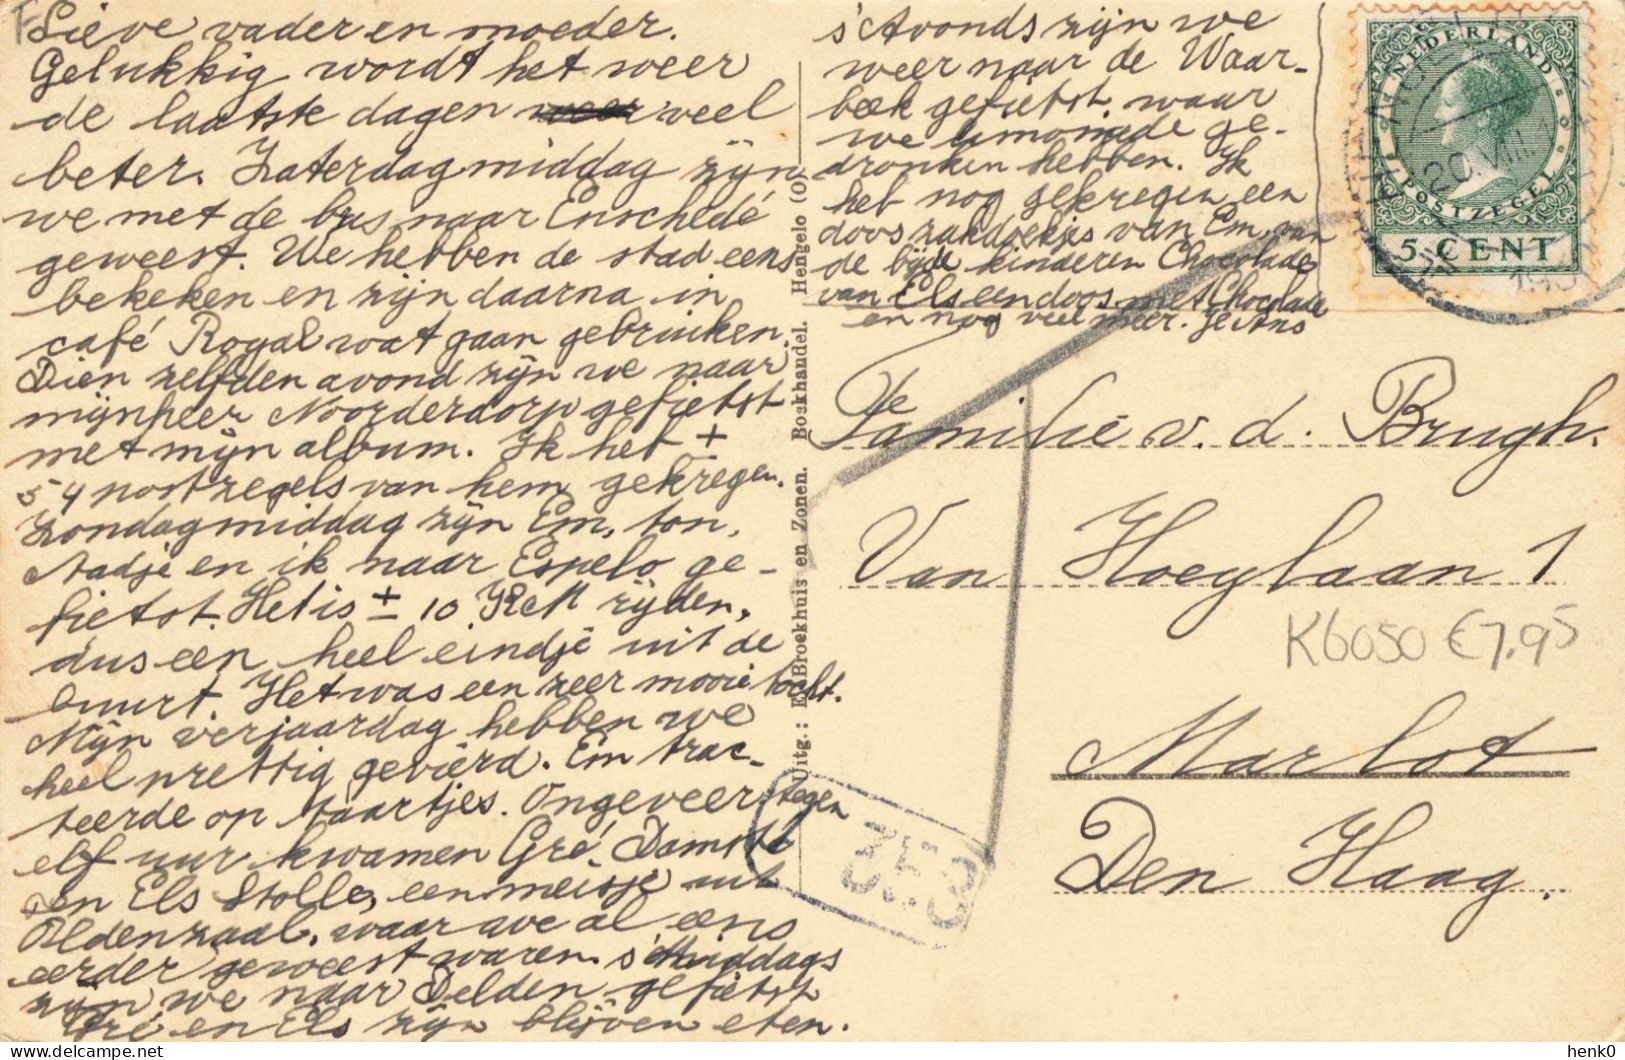 Lieve vader en moeder.
Gelukkig wordt het weer
de laatste dagen veel
beter. Zaterdagmiddag zijn
we met de bus naar Enschedé
geweest. We hebben de stad eens
bekeken en zijn daarna in
café Royal wat gaan gebruiken.
Dien zelfden avond zijn we naar
mijnheer Noorderdorp gefietst
met mijn album. Ik heb ±
54 postzegels van hem gekregen.
Zondagmiddag zijn Em, ton,
Aadje en ik naar Espelo ge-
fietst. Het is ± 10 K.M rijden,
dus een heel eindje uit de
buurt. Het was een zeer mooie tocht.
Mijn verjaardag hebben we
heel prettig gevierd. Em trac-
teerde op taartjes. Ongeveer tegen
elf uur kwamen Gré Damsté
en Els Stolle, een meisje uit
Oldenzaal, waar we al eens
eerder geweest waren. s'Middags
zijn we naar Delden gefietst
Gré en Els zijn blijven eten.
s'Avonds zijn we
weer naar de Waar-
beek gefietst, waar
we limonade ge-
dronken hebben. Ik
heb nog gekregen een
doos zakdoekjes van Em, van
de bijde kinderen Chocolade
van Els een doos met Chocolade
en nog veel meer. Je Ans
Uitg.: E. Broekhuis en Zonen. Boekhandel. Hengelo (O)
NEDERLAND
POSTZEGEL
5 CENT
20.VIII
De
Familie v. d. Brugh.
Van Hoeylaan 1
K6050 €7,95
Marlot
Den Haag.
henk0